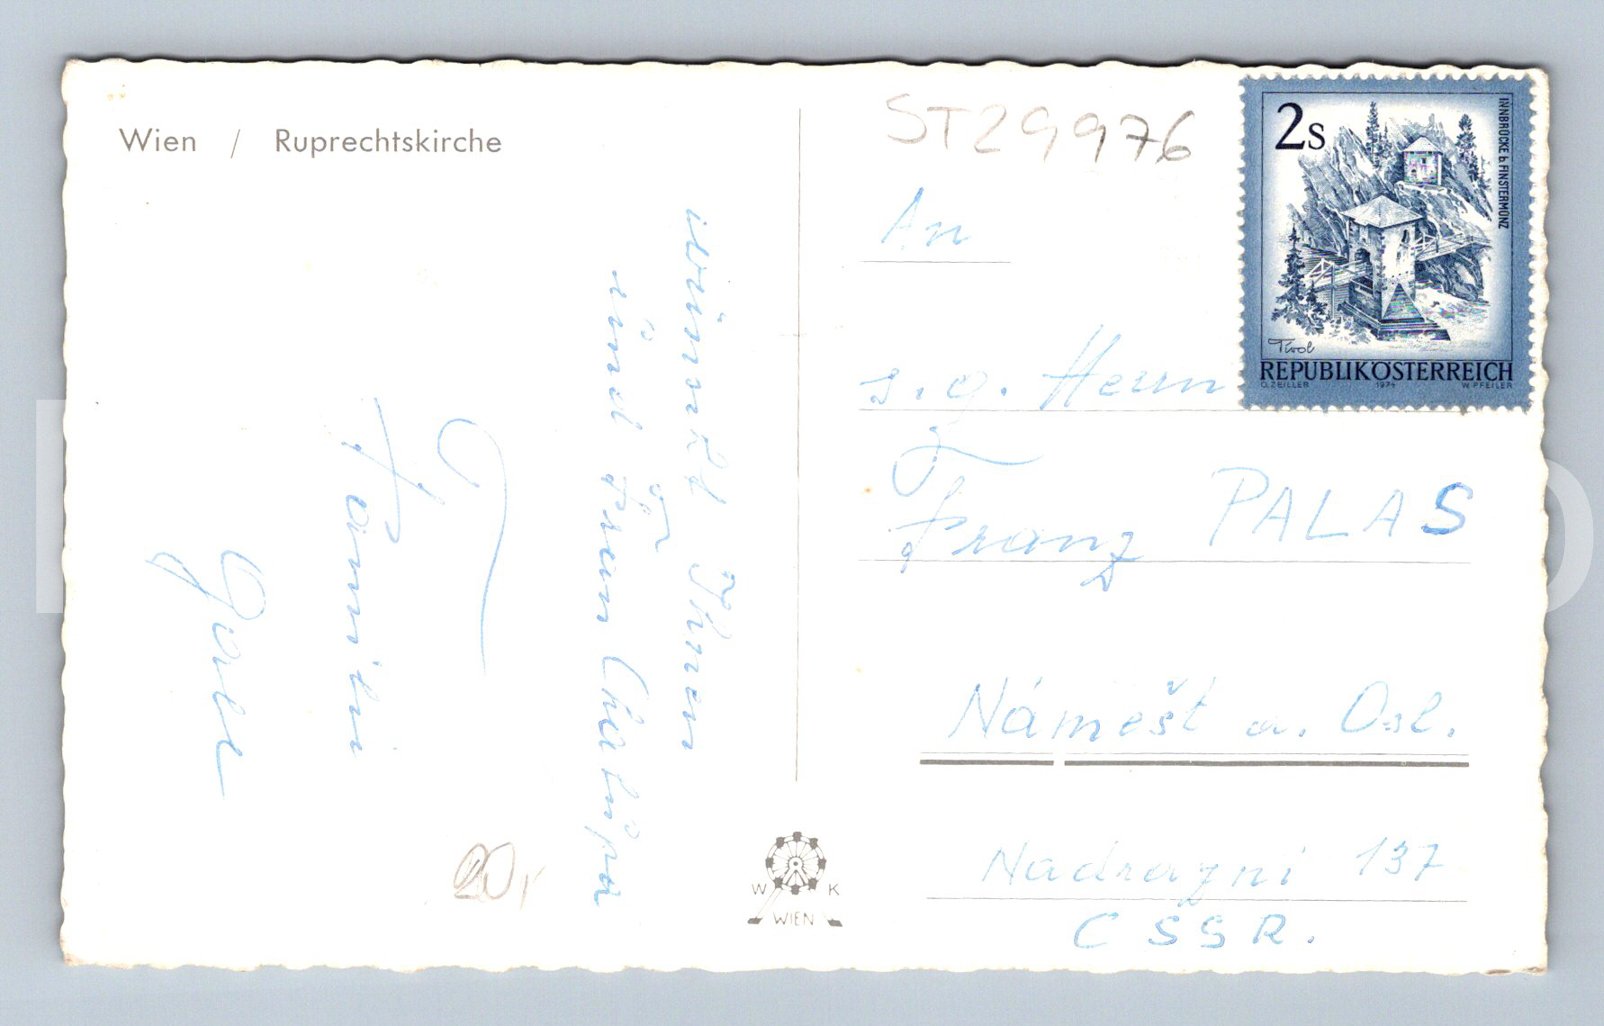 Wien / Ruprechtskirche
ST29976
2s
INNBRÜCKE b. FINSTERMÜNZ
Tirol
REPUBLIK ÖSTERREICH
O. ZEILLER 1974 W. PFEILER
An
s. g. Herrn
Franz PALAS
Náměšt a. Osl.
Nadrazni 137
ČSSR.
wünscht Ihnen
und Frau
Familie
20,
W K
WIEN